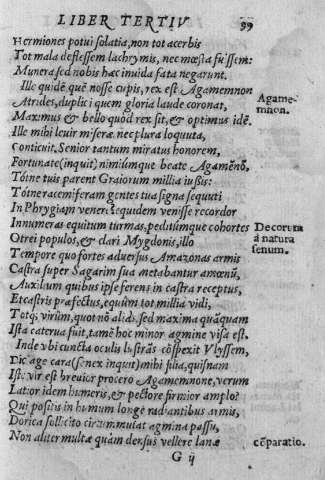 LIBER TERTIV 99
Hermiones potui solatia, non tot acerbis
Tot mala deflessem lachrymis, nec mœsta fuissem:
Munera sed nobis hæc inuida fata negarunt.
Ille quidẽ quẽ nosse cupis, rex est Agamemnon
Atrides, duplici quem gloria laude coronat, Agame-
Maximus & bello quòd rex sit, & optimus idẽ. mnon.
Ille mihi leuir miseræ. nec plura loquuta,
Conticuit. Senior tantum miratus honorem,
Fortunate (inquit) nimiúmque beate Agamẽnõ,
Tóine tuis parent Graiorum millia iussis:
Tóine racemiferam gentes tua signa sequuti
In Phrygiam veneré: equidem venisse recordor
Innumeras equitum turmas, peditúmque cohortes Decorum
Otrei populos, & clari Mygdonis, illo à natura
Tempore quo fortes aduersus Amazonas armis senum.
Castra super Sagarim sua metabantur amœnũ,
Auxilium quibus ipse ferens in castra receptus,
Et castris præfectus, equûm tot millia vidi,
Totq; virûm, quot nõ aliàs. sed maxima quãquam
Ista caterua fuit, tamẽ hoc minor agmine visa est.
Inde vbi cuncta oculis lustrãs cõspexit Vlyssem,
Dic age cara (senex inquit) mihi filia, quisnam
Iste vir est breuior procero Agamemnone, verum
Latior idem humeris, & pectore firmior amplo?
Qui positis in humum longè radiantibus armis,
Dorica sollicito circummutat agmina passu,
Non aliter multæ quàm densus vellere lanæ cõparatio.
G ij